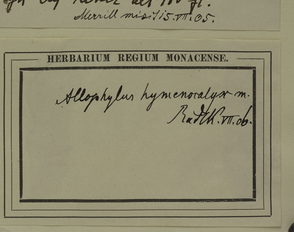 Merrill misit 15.VII.05.
HERBARIUM REGIUM MONACENSE.
Allophylus hymenocalyx m.
Radlk. VII. 06.